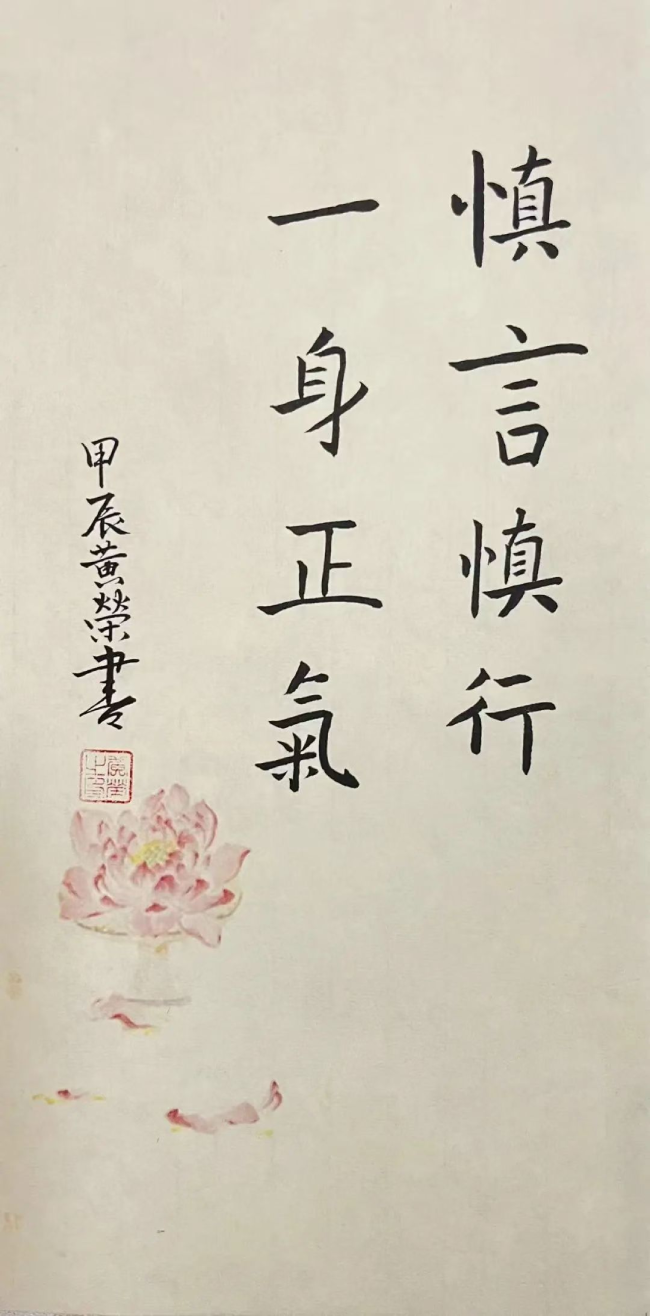 慎言慎行
一身正氣
甲辰黄榮書